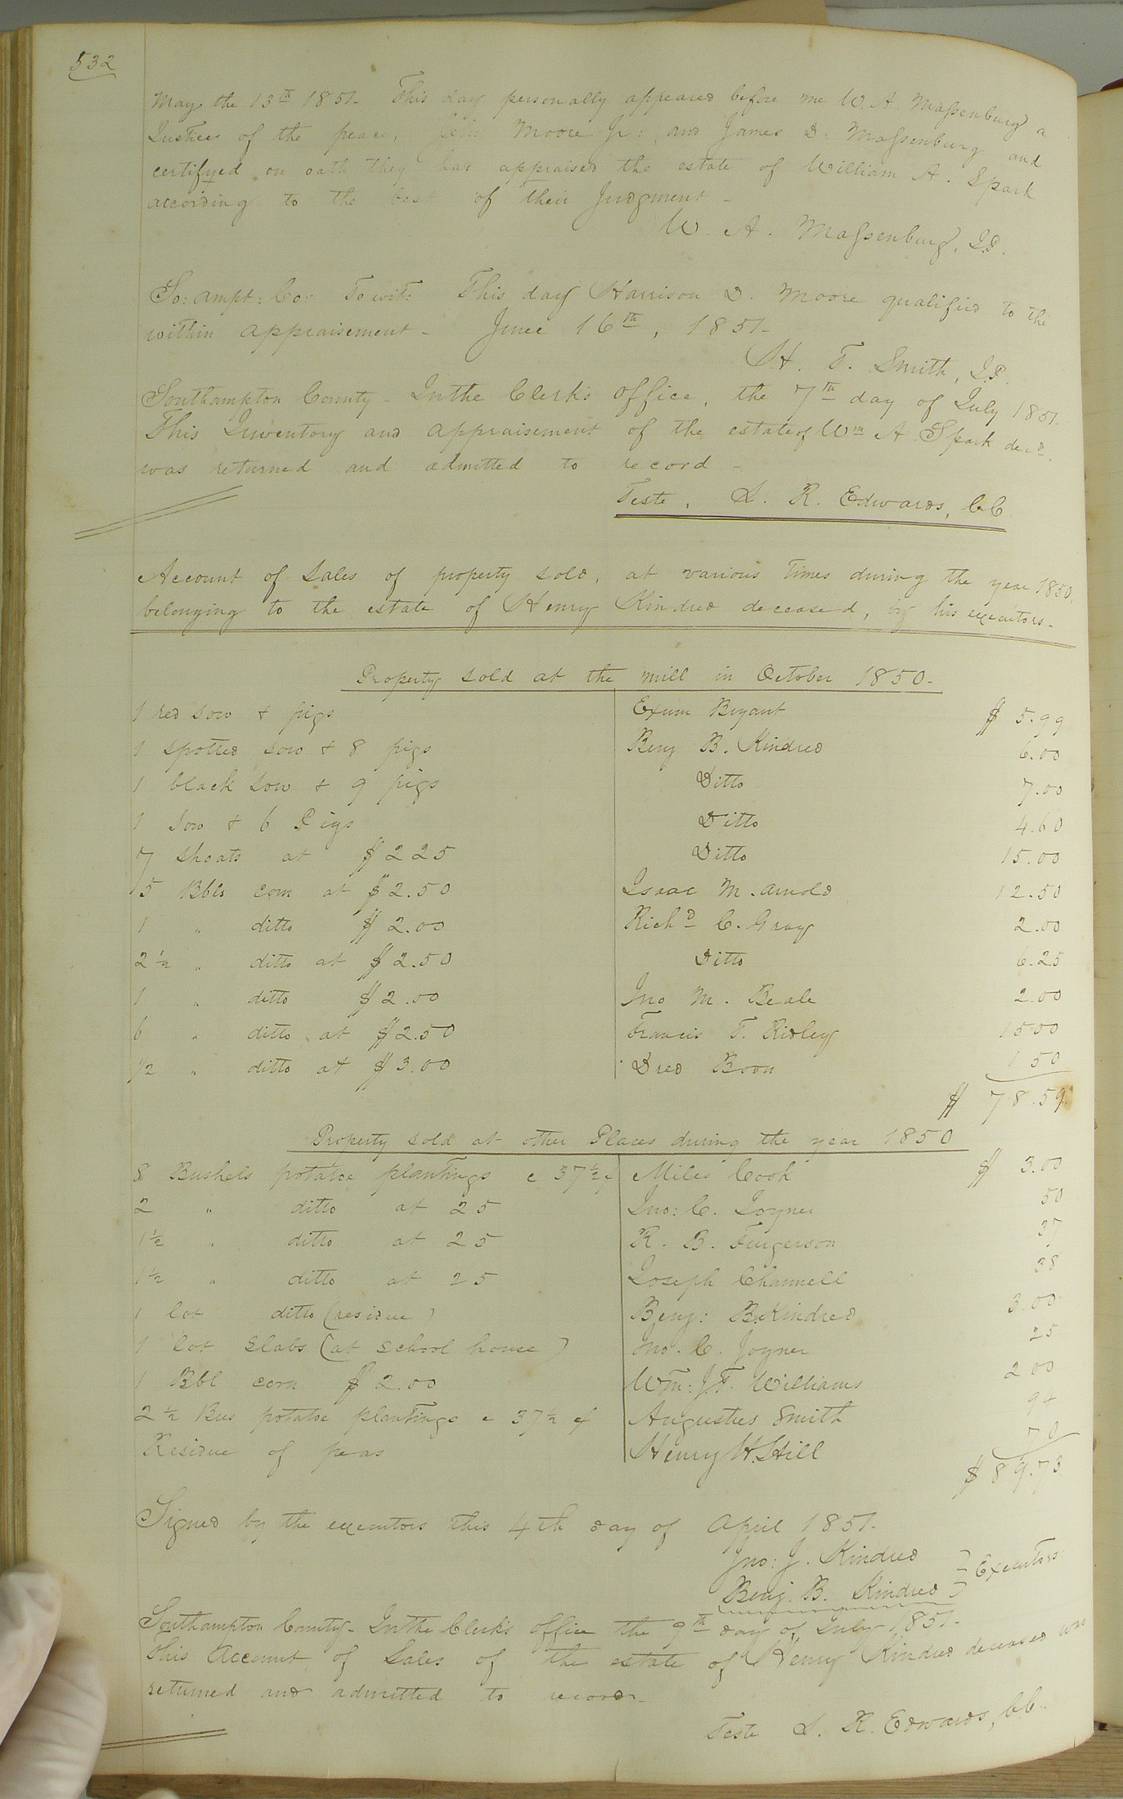 532
May the 13th 1851. This day personally appeared before me W. A. Massenburg a
Justice of the peace, Moore Jr: and James D. Massenburg and
certifyed on oath they has appraised the estate of William A. Spark
according to the best of their Judgment -
W. A. Massenburg, J.P.
So: ampt: Co: Towit: This day Harrison D. Moore qualified to the
within appraisement - June 16th, 1851-
H. T. Smith, J.P.
Southampton County - In the Clerks office, the 7th day of July 1851.
This Inventory and appraisement of the estate of Wm A Spark decd.
was returned and admitted to record -
Teste, L. R. Edwards, CC
Account of Sales of property sold, at various times during the year 1850.
belonging to the estate of Henry Kindred deceased, by his executors.
Property sold at the mill in October 1850-
1 red sow & pigs Exum Bryant $ 5.99
1 spotted sow & 8 pigs Benj B. Kindred 6.00
1 black sow & 9 pigs Ditto 7.00
1 Sow & 6 Pigs Ditto 4.60
7 shoats at $ 2 25 Ditto 15.00
5 Bbls corn at $ 2.50 Isaac M. Arnold 12.50
1 " ditto $ 2.00 Richd C. Gray 2.00
2 ½ " ditto at $ 2.50 Ditto 6.25
1 " ditto $ 2.00 Jno M. Beale 2.00
6 " ditto at $ 2.50 Francis T. Ridley 15 00
1/2 " ditto at $ 3.00 Dred Boon 1 50
$ 78.59
Property sold at other Places during the year 1850
8 Bushels potatoe plantings @ 37 ½ ¢ Miles Cook $ 3.00
2 " ditto at 25 Jno: C. Joyner 50
1½ " ditto at 25 R. B. Furgerson 37
1½ " ditto at 25 Joseph Channell 38
1 lot ditto (residue) Benj: B. Kindred 3.00
1 lot slabs (at school house) Jno. C. Joyner 25
1 Bbl corn $ 2.00 Wm: J. F. Williams 2 00
2 ½ Bus potatoe plantings @ 37 ½ ¢ Augustus Smith 94
Residue of peas Henry H. Hill 70
$ 89.73
Signed by the executors this 4th day of April 1851.
Jno: J. Kindred } Executors
Benj. B. Kindred }
Southampton County - In the Clerks office the 9th day of July 1851.
This Account of Sales of the estate of Henry Kindred deceased was
returned and admitted to record.
Teste L. R. Edwards, CC.